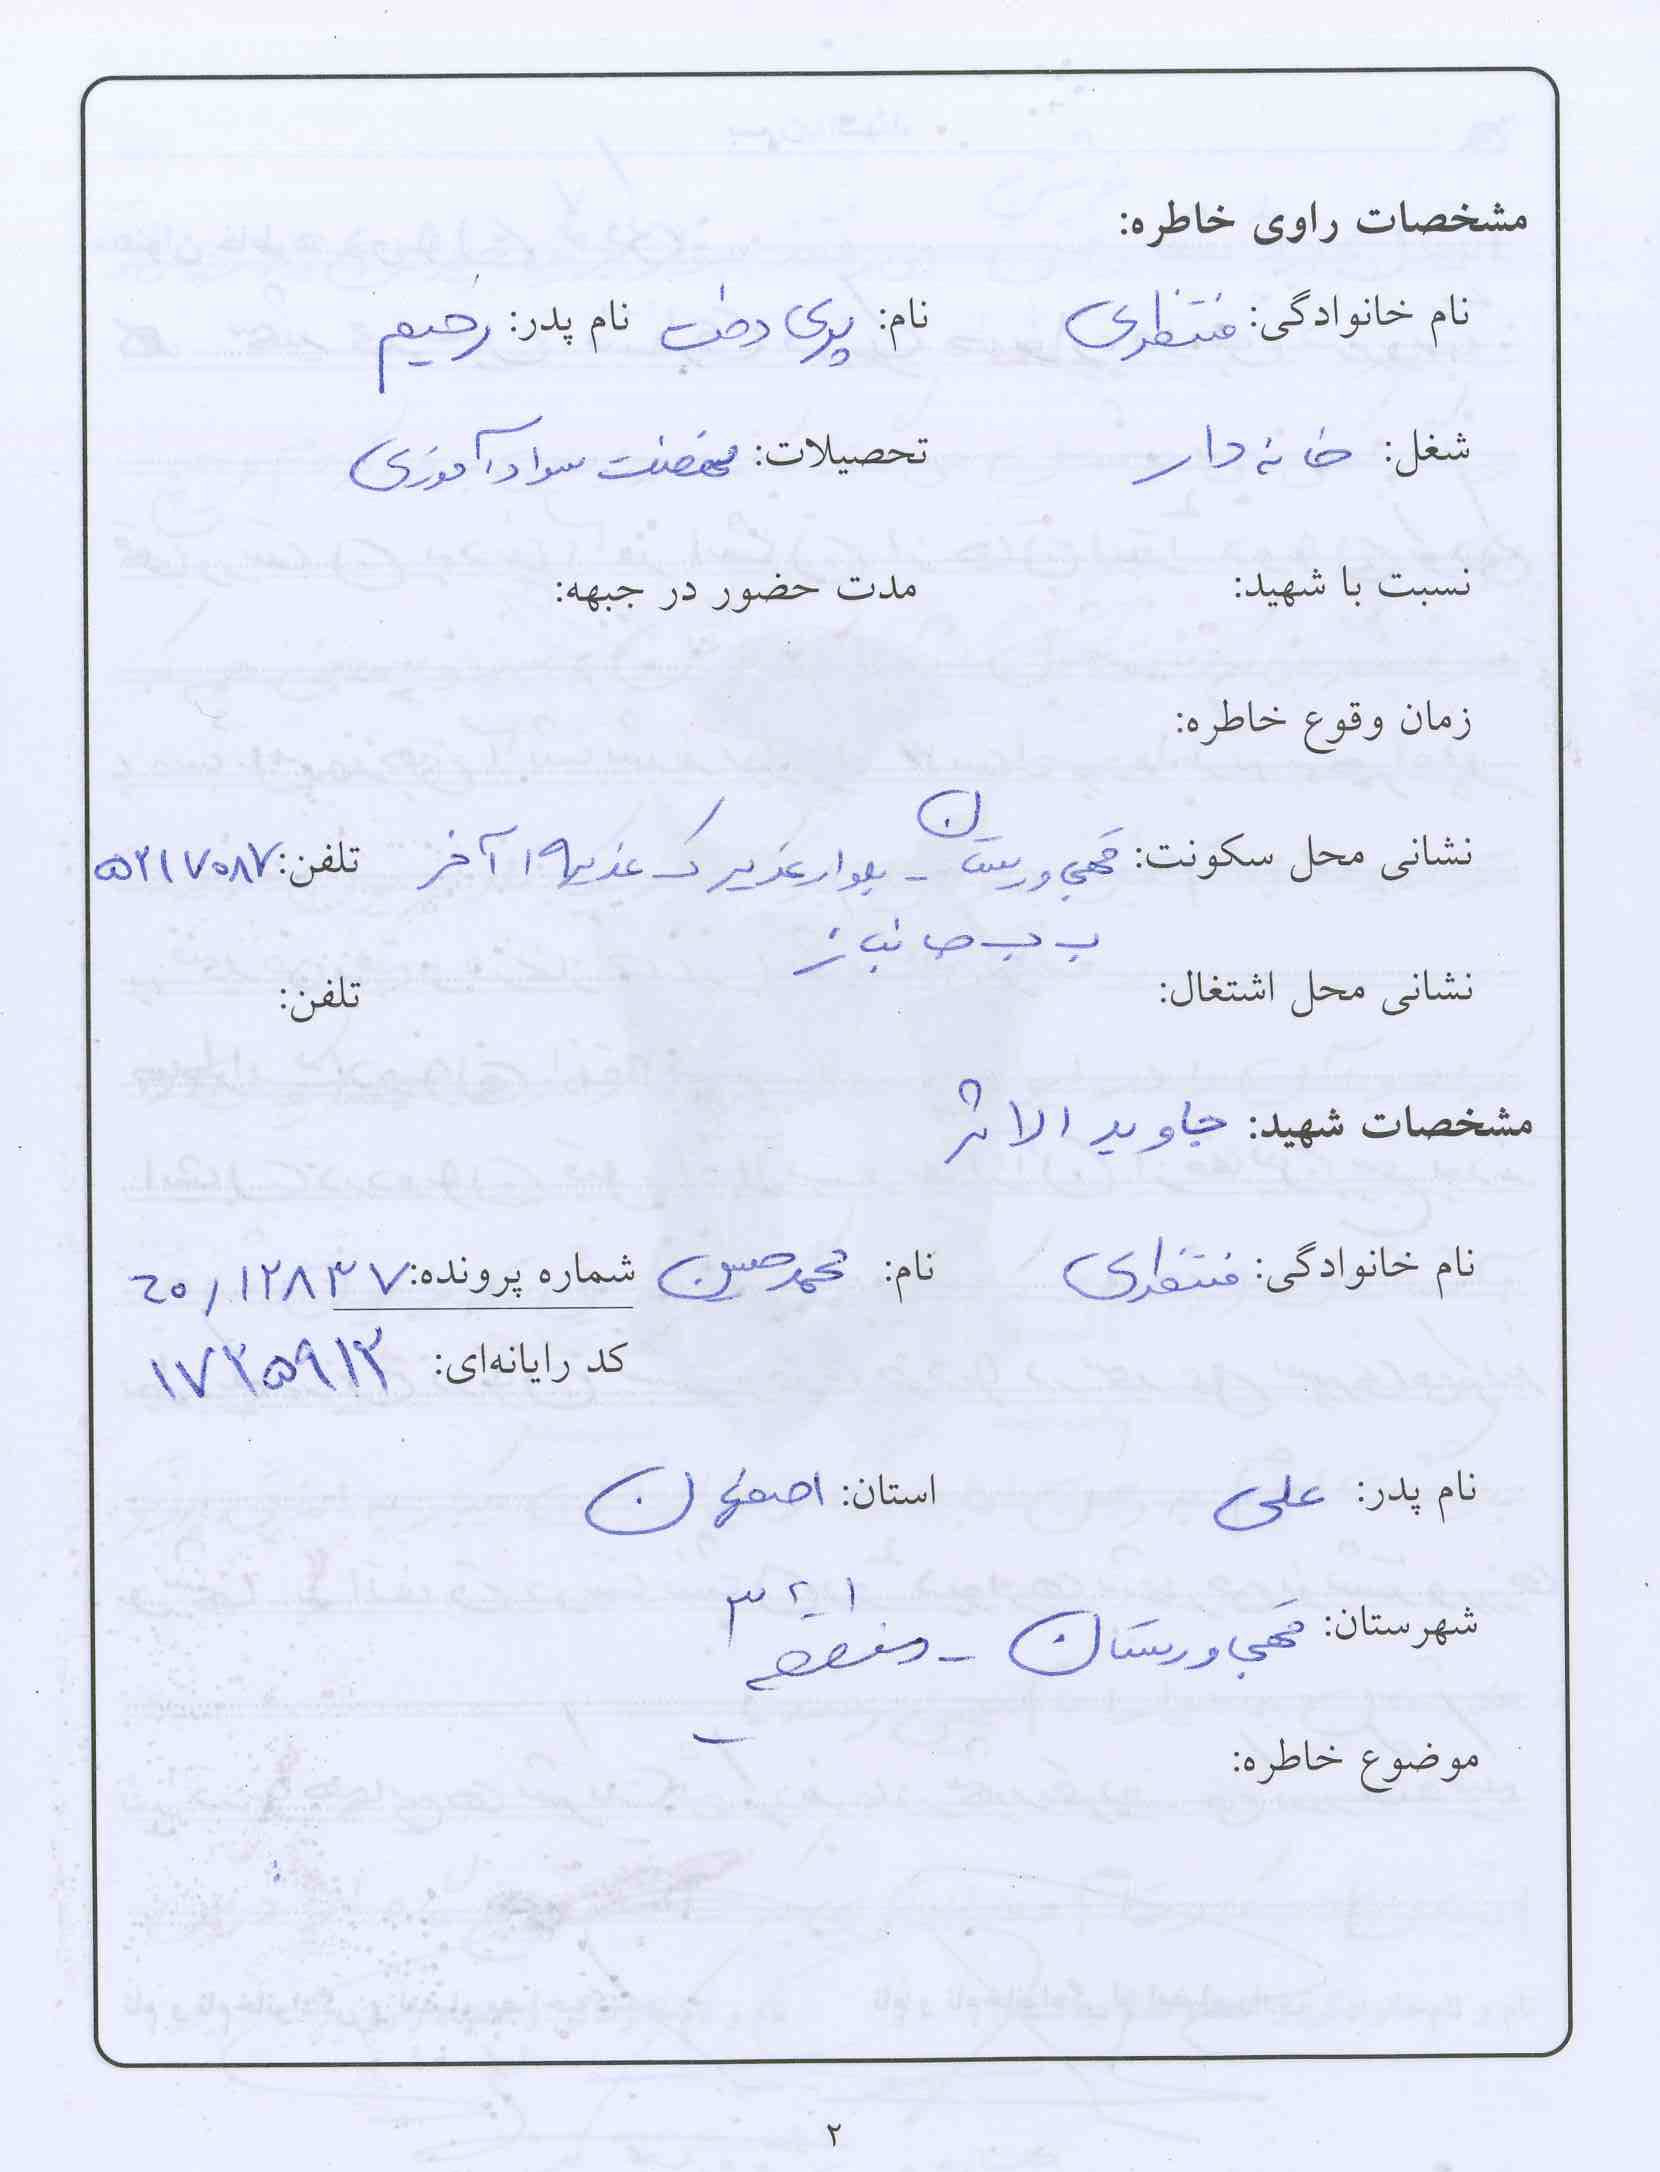 مشخصات راوی خاطره:
نام خانوادگی: منتظری نام: پری دخت نام پدر: رحیم
شغل: خانه دار تحصیلات: نهضت سواد آموزی
نسبت با شهید: مدت حضور در جبهه:
زمان وقوع خاطره:
نشانی محل سکونت: قهجاورستان - بلوار غدیر ک غدیر ۱ آخر تلفن: ۵۲۱۷۰۸۷
ب ب جانباز
نشانی محل اشتغال: تلفن:
مشخصات شهید: جاوید الاثر
نام خانوادگی: منتظری نام: محمدحسین شماره پرونده: ۶۰/۱۲۸۳۷
کد رایانه‌ای: ۱۷۲۵۹۱۳
نام پدر: علی استان: اصفهان
شهرستان: قهجاورستان - منطقه ۳
موضوع خاطره:
۲